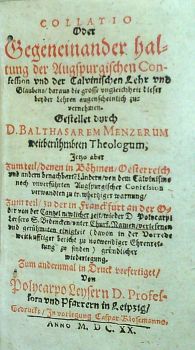 COLLATIO
Oder
Gegeneinander hal-
tung der Augspurgischen Con-
fession vnd der Calvinischen Lehr vnd
Glaubens/ daraus die grosse vngleichheit dieser
beyder Lehren augenscheinlich zu-
vernehmen.
Gestellet durch
D. BALTHASAREM MENZERUM
weitberühmbten Theologum,
Jetzo aber
Zum theil/ denen in Böhmen/ Oesterreich
vnd andern benachbarten Ländern/ von dem Calvinismo
noch vnverführten Augspurgischer Confession
verwandten zu trewhertziger warnung/
Zum theil/ zu der in Franckfurt an der O-
der von der Cantzel newlicher zeit wieder D. Polycarpi
Leysers S. vnter Chur-
vnd gerühmbten einigkeit (davon in der Vorrede
weitläufftiger bericht zu notwendiger Ehrenret-
tung zu finden) gründlicher
wiederlegung.
Zum andernmal in Druck verfertiget/
Von
Polycarpo Leysern D. Profes-
sorn vnd Pfarrern in Leipzig/
Gedruckt/ In vorlegung Caspar Klosemanns,
ANNO M. DC. XX.